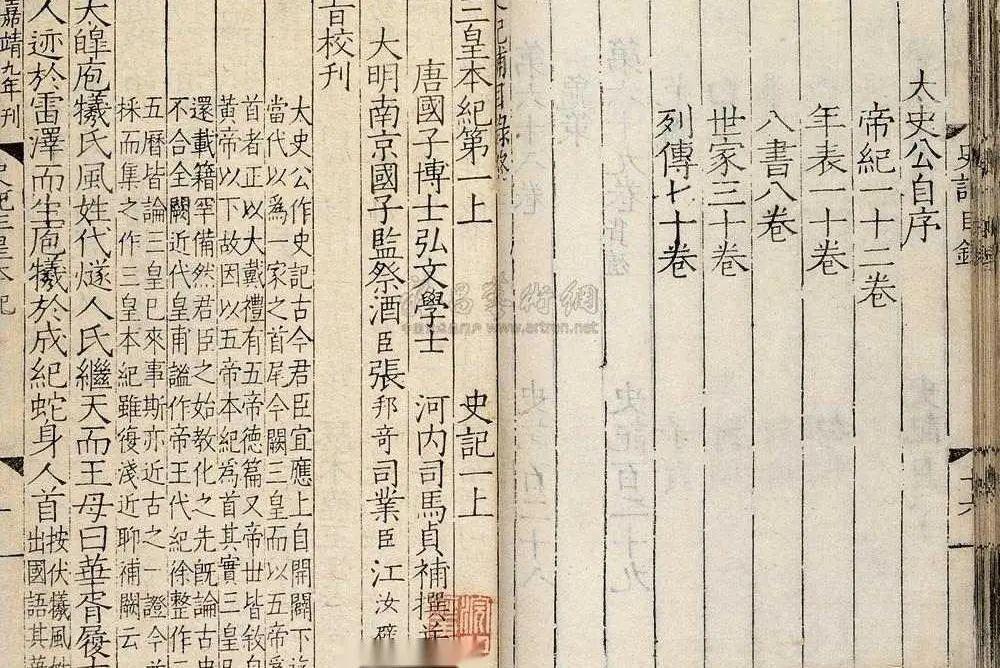 史記目錄
十六
太史公自序
帝紀一十二卷
年表一十卷
八書八卷
世家三十卷
列傳七十卷
三皇本紀第一上 史記一上
唐國子博士弘文學士 河内司馬貞補撰
大明南京國子監祭酒臣張邦竒司業臣江汝璧
旨校刊
大史公作史記古今君臣宜應上自開闢下
當代以爲一家之首尾今闕三皇而以五帝爲
首者正以大戴禮有五帝德篇又帝世皆敘自
黃帝以下故因以五帝本紀爲首其實三皇
還載籍罕備然君臣之始教化之先旣論古史
不合全闕近代皇甫謐作帝王代紀徐整作三
五曆皆論三皇已來事斯亦近古之一證今
採而集之作三皇本紀雖復淺近聊補闕云
大皥庖犧氏風姓代燧人氏繼天而王母曰華胥履大
人迹於雷澤而生庖犧於成紀蛇身人首
按伏犧風姓
出國語其華
嘉靖九年刊
史記三皇本紀
www.artron.net